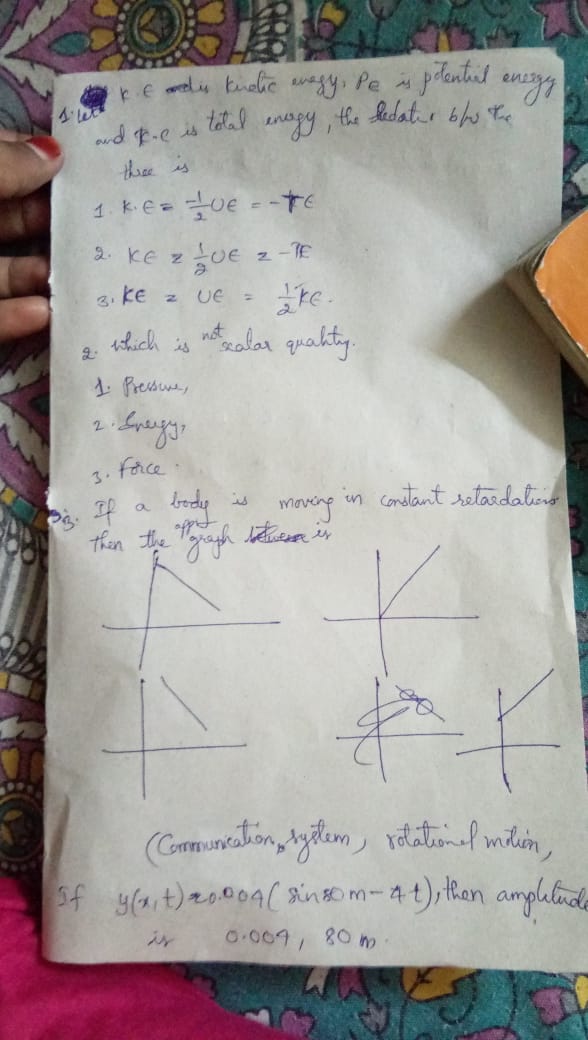 1. Let K.E is kinetic energy, Pe is potential energy
and is total energy, the b/w the
three is
1. K.E = -1/2 UE = -TE
2. KE = 1/2 UE = -TE
3. KE = UE = 1/2 KE.
2. which is not scalar quality.
1. Pressure,
2. Energy,
3. Force.
3. If a body is moving in constant retardation
then the graph is
(Communication system, rotational motion,
If y(x,t) 0.004( sin 80 m - 4t), then amplitude
is 0.004, 80 m.